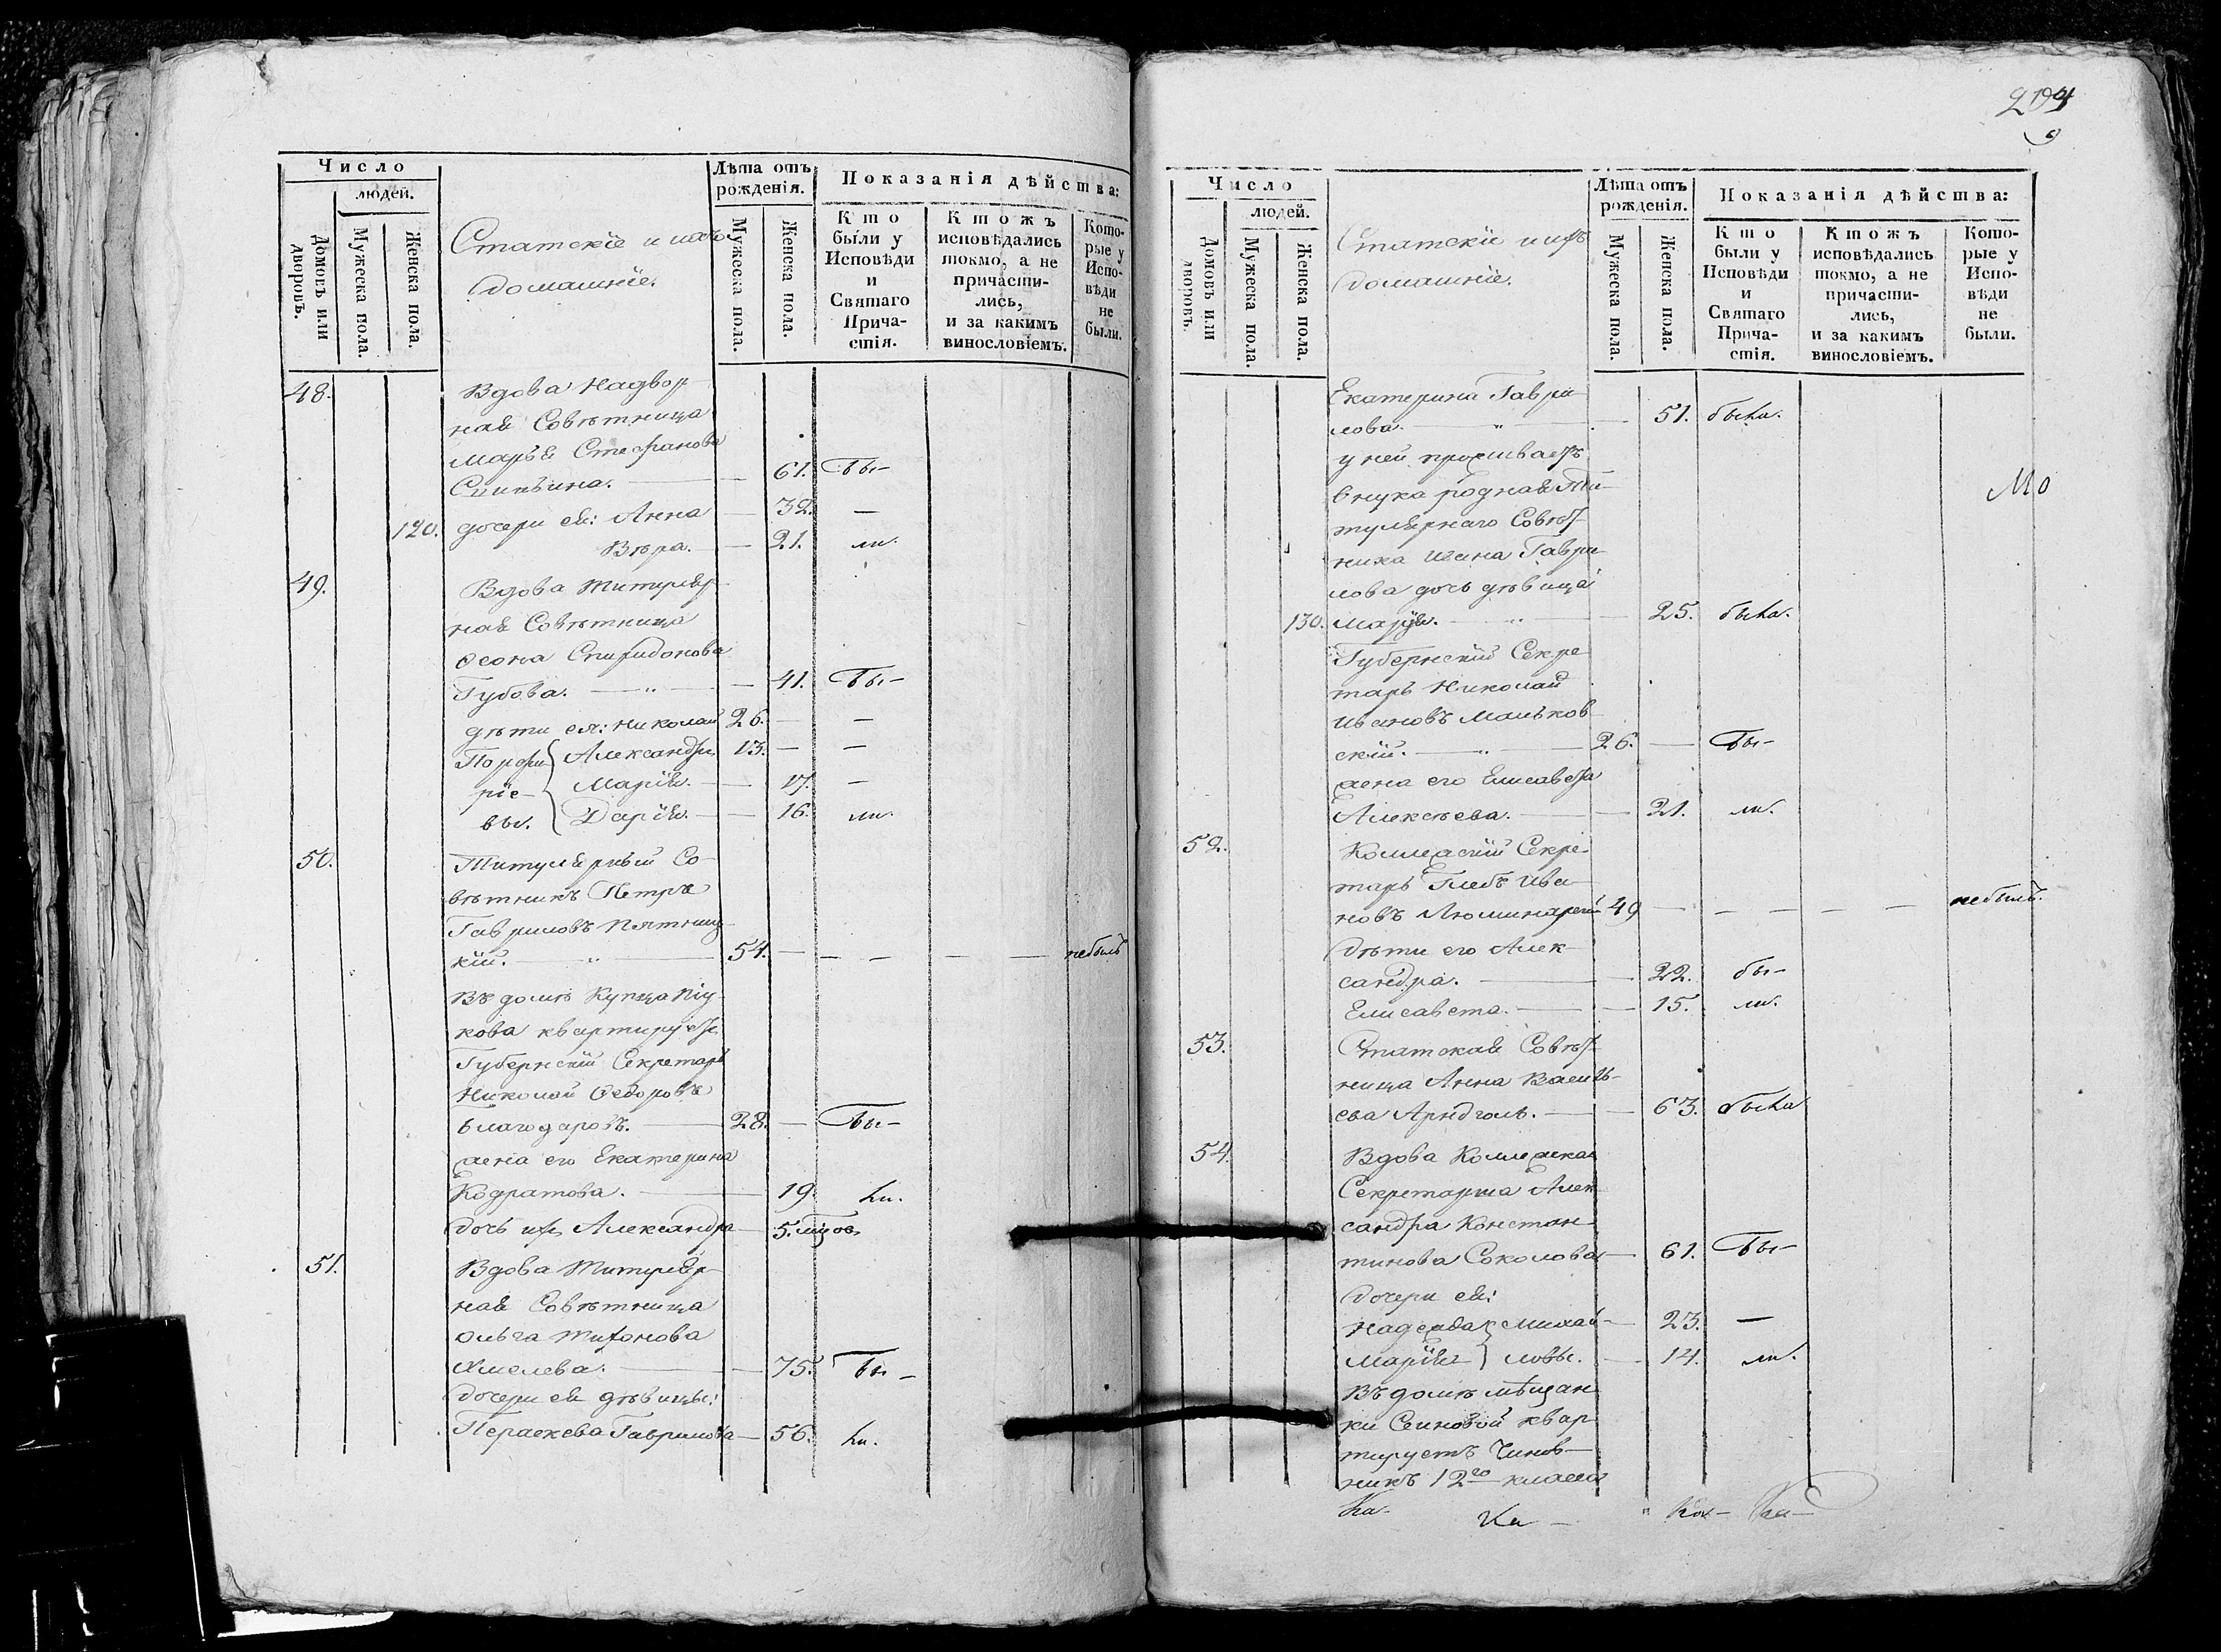 Число
людей.
Домовъ или дворовъ.
Мужеска пола.
Женска пола.
Статскіе и ихъ
домашніе.
Лѣта отъ рожденія.
Мужеска пола.
Женска пола.
Показанія дѣйства:
Кто были у Исповѣди и Святаго Прича-стія.
Ктожъ исповѣдались токмо, а не причасти-лись, и за какимъ винословіемъ.
Кото-рые у Испо-вѣди не были.
48. Вдова Надвор
ная Совѣтница
Марья Стефанова
61. бы-
120. дочери ея: Анна — 32. —
Вѣра. — 21. ли.
49. Вдова Титуляр
ная Совѣтница
Спиридонова
Губова. — „ — 41. бы-
дѣти ея: Николай 26. — —
Порфи Александръ 13. — —
ріе- Марія. — 17. —
вы. Дарія. — 16. ли.
50. Титулярный Со-
вѣтникъ Петръ
Гавриловъ Пятниц
кій. — „ — 54. — — — — — небылъ
Въ домѣ Купца
кова квартируетъ
Губернскій Секретарь
Николай Ѳедоровъ
Благодаровъ. — 28. — бы-
жена его Екатерина
Кодратова. — 19. ли.
дочь ихъ Александра — 5. мцов.
51. Вдова Титуляр-
ная Совѣтница
Ольга Тихонова
Хмелева. — 75. бы-
дочери ея дѣвицы:
Параскева Гаврилова — 56. ли.
294
Число
людей.
Домовъ или дворовъ.
Мужеска пола.
Женска пола.
Статскіе и ихъ
домашніе.
Лѣта отъ рожденія.
Мужеска пола.
Женска пола.
Показанія дѣйства:
Кто были у Исповѣди и Святаго Прича-стія.
Ктожъ исповѣдались токмо, а не причасти-лись, и за какимъ винословіемъ.
Кото-рые у Испо-вѣди не были.
Екатерина Гаври
лова. — „ — 51. была.
у ней проживаетъ
внука родная Ти-
тулярнаго Совѣт-
ника Ивана Гаври-
лова дочь дѣвица
130. Марія. — „ — 25. была.
Губернскій Секре
тарь Николай
Ивановъ Маньков
скій. — „ — 26. — бы-
жена его Елисавета
Алексѣева. — 21. ли.
52. Коллежскій Секре-
тарь Глебъ Ива-
новъ 49 — — — — — небылъ.
дѣти его Алек-
сандра. — 22. бы-
Елисавета. — 15. ли.
53. Статская Совѣт-
ница Анна Василь-
ева — 63. была
54. Вдова Коллежская
Секретарша Алек
сандра Констан-
тинова Соколова — 61. бы-
дочери ея:
Надежда Михай- — 23. —
Марія ловы. — 14. ли.
Въ домѣ мѣщан
ки квар
тируетъ Чинов-
никъ 12го класса